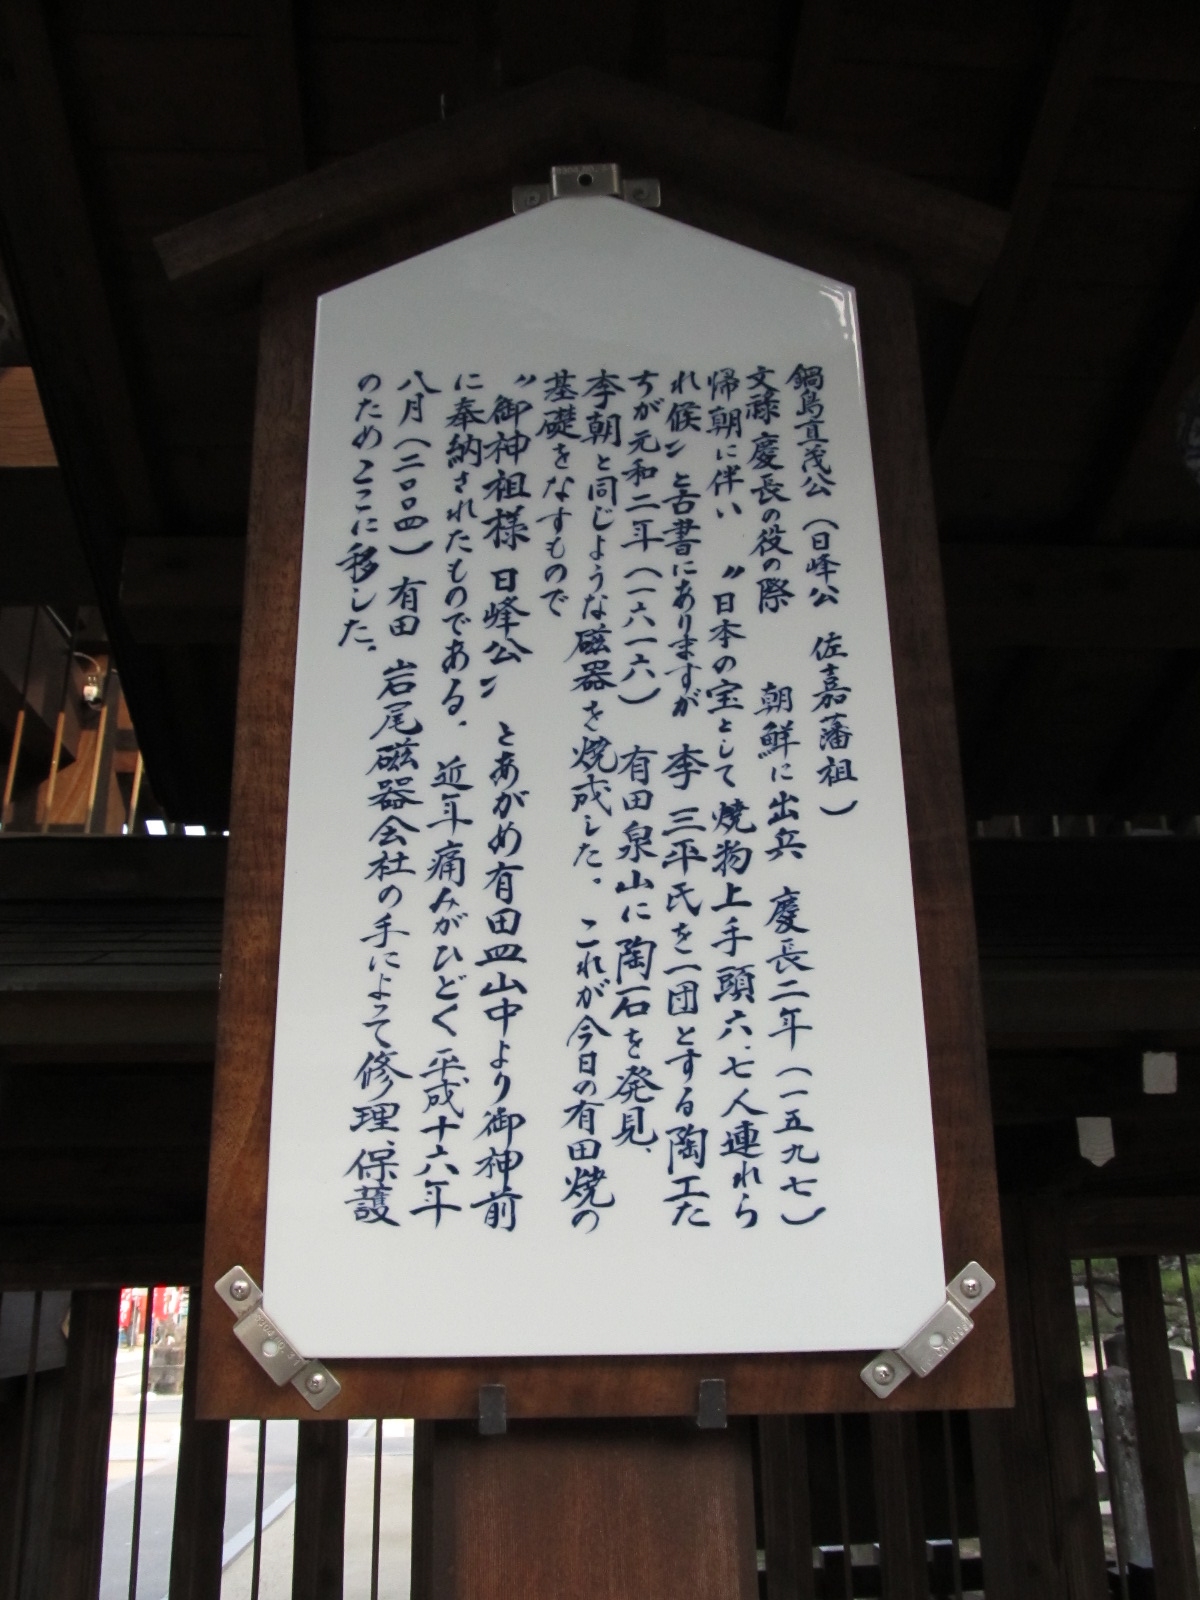 鍋島直茂公(日峰公 佐嘉藩祖)
文禄慶長の役の際 朝鮮に出兵 慶長二年(一五九七)
帰朝に伴い 〃日本の宝として焼物上手頭六、七人連れら
れ候〃と古書にありますが 李 三平氏を一団とする陶工た
ちが元和二年(一六一六) 有田泉山に陶石を発見、
李朝と同じような磁器を焼成した。これが今日の有田焼の
基礎をなすもので
〃御神祖様 日峰公〃 とあがめ有田皿山中より御神前
に奉納されたものである。近年痛みがひどく平成十六年
八月(二〇〇四)有田 岩尾磁器会社の手によって修理、保護
のためここに移した。